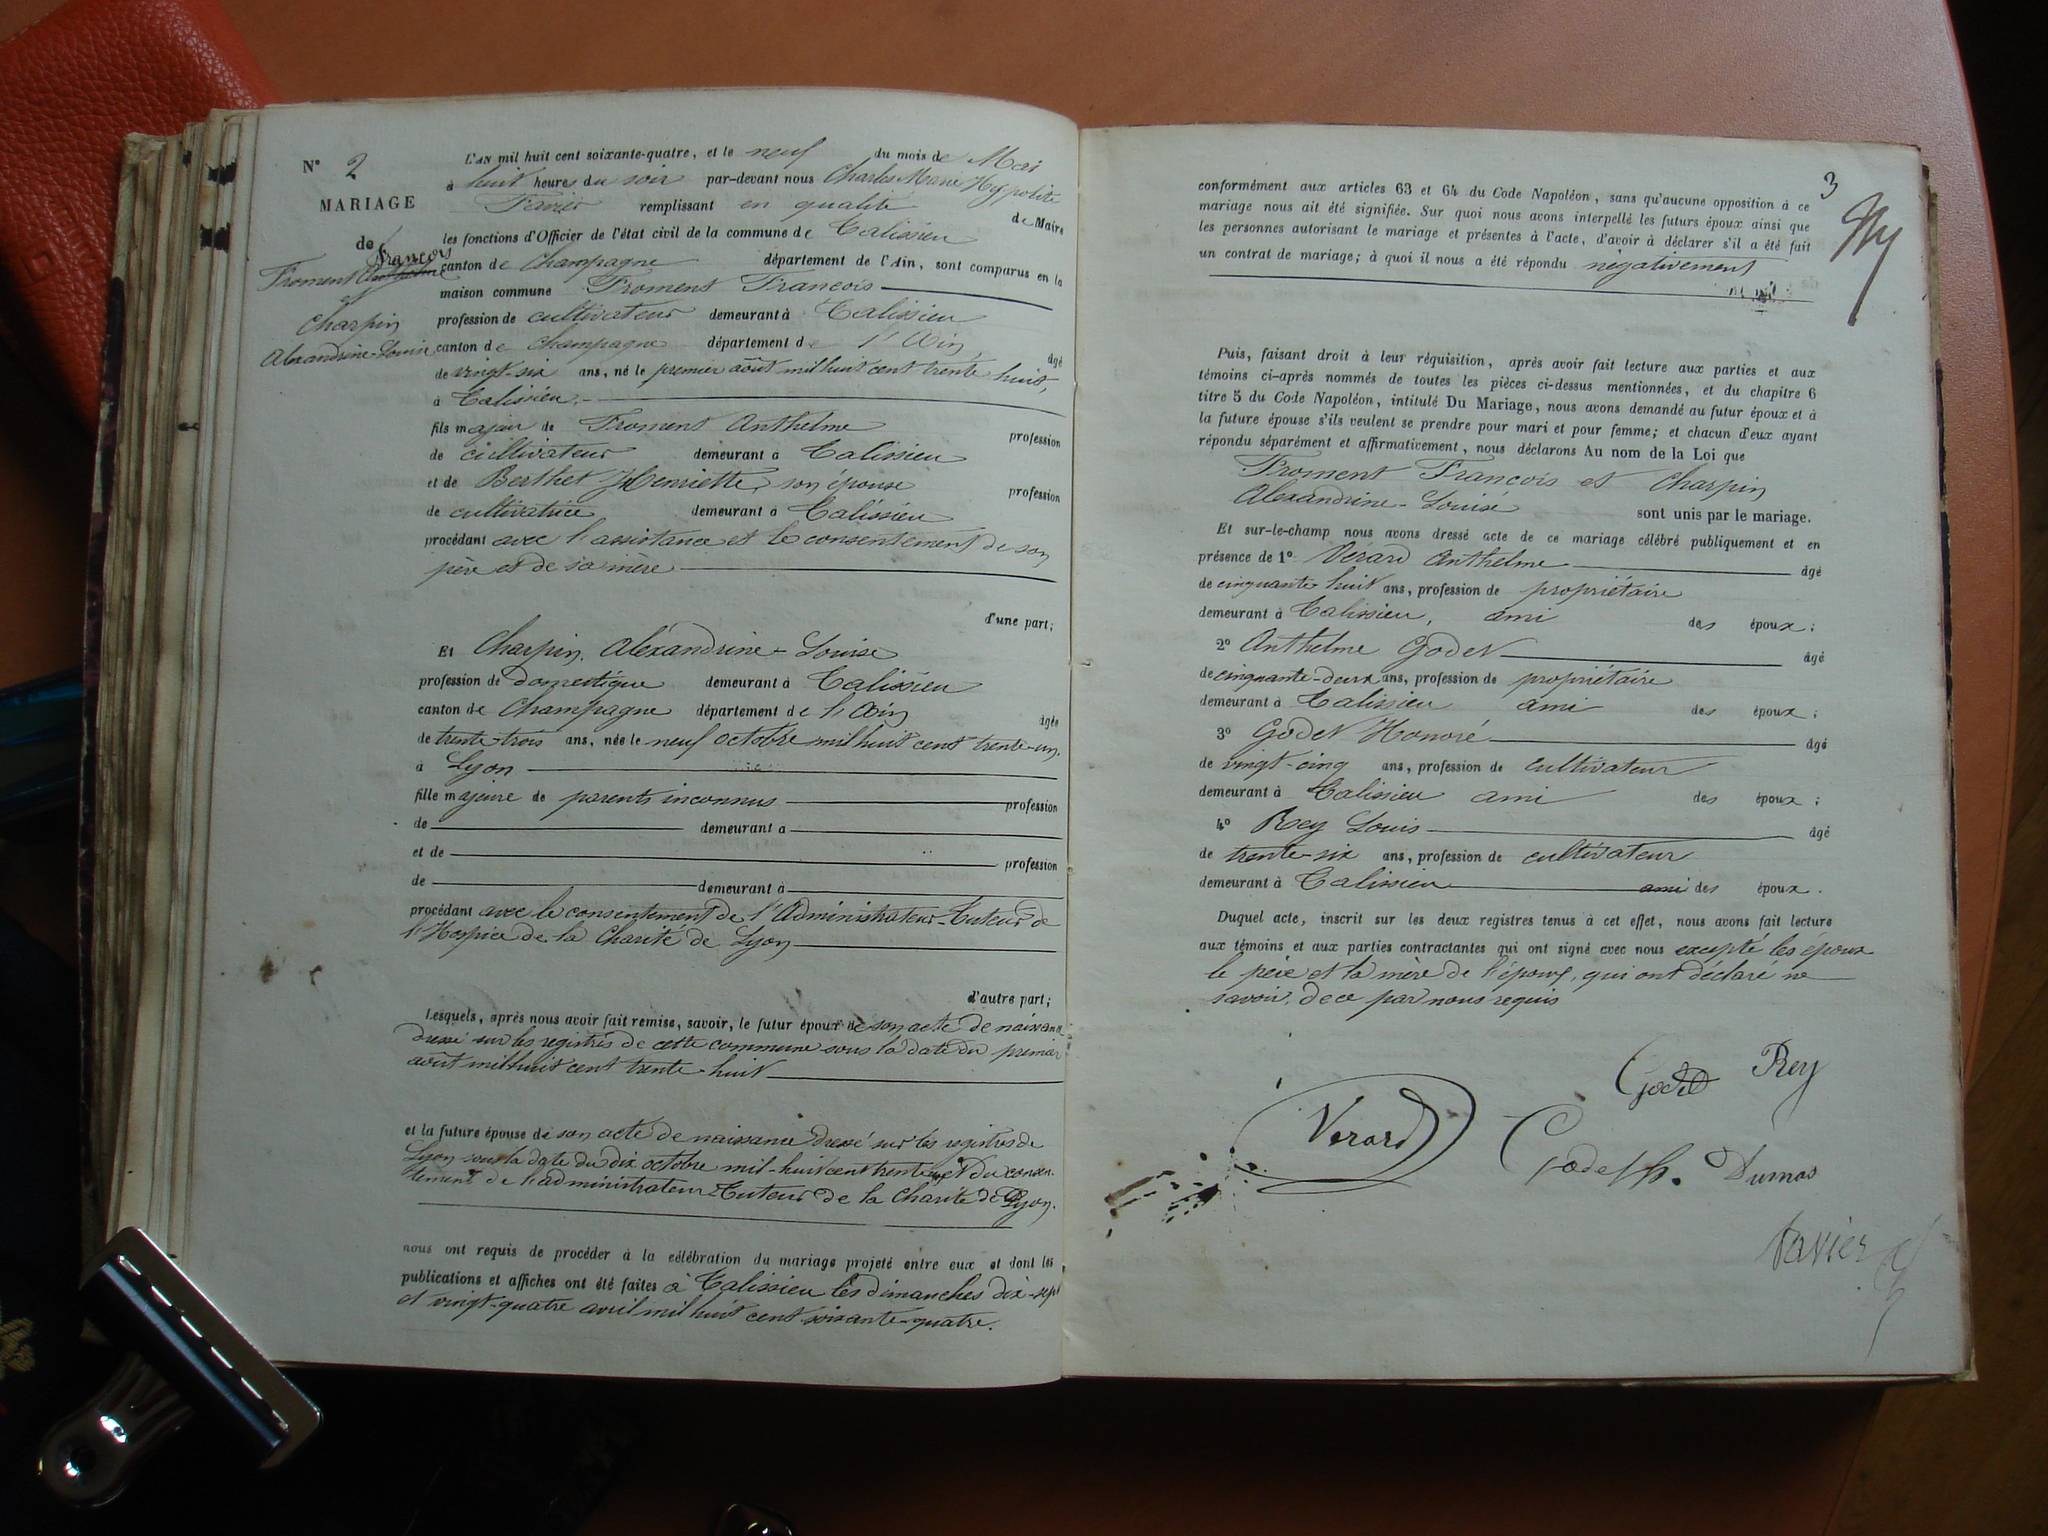 N° 2
MARIAGE
de
François
Froment Anthelme
et
Charpin
Alexandrine-Louise
L'AN mil huit cent soixante-quatre, et le neuf du mois de Mai
à huit heure du soir par-devant nous Charles Marie Hypolite
Favier remplissant en qualité de Maire
les fonctions d'Officier de l'état civil de la commune de Talissieu
canton de Champagne département de l'Ain, sont comparus en la
maison commune Froment François
profession de cultivateur demeurant à Talissieu
canton de Champagne département de l'Ain âgé
de vingt-six ans, né le premier août mil huit cent trente huit,
à Talissieu.
fils majeur de Froment Anthelme profession
de cultivateur demeurant à Talissieu
et de Berthet Henriette, son épouse profession
de cultivatrice demeurant à Talissieu
procédant avec l'assistance et le consentement de son
père et de sa mère
d'une part;
Et Charpin, Aléxandrine-Louise
profession de domestique demeurant à Talissieu
canton de Champagne département de l'Ain âgée
de trente-trois ans, née le neuf octobre mil huit cent trente-un,
à Lyon
fille majeure de parents inconnus profession
de demeurant à
et de profession
de demeurant à
procédant avec le consentement de l'Administrateur-Tuteur de
l'Hospice de la Charité de Lyon
d'autre part;
Lesquels, après nous avoir fait remise, savoir, le futur époux de son acte de naissance
dressé sur les registres de cette commune sous la date du premier
août mil huit cent trente-huit
et la future épouse de son acte de naissance dressé sur les registres de
Lyon sous la date du dix octobre mil-huit cent trente un et du consen-
tement de l'administrateur-Tuteur de la Charité de Lyon.
nous ont requis de procéder à la célébration du mariage projeté entre eux et dont les
publications et affiches ont été faites à Talissieu les dimanches dix-sept
et vingt-quatre avril mil huit cent soixante-quatre.
3
conformément aux articles 63 et 64 du Code Napoléon, sans qu'aucune opposition à ce
mariage nous ait été signifiée. Sur quoi nous avons interpellé les futurs époux ainsi que
les personnes autorisant le mariage et présentes à l'acte, d'avoir à déclarer s'il a été fait
un contrat de mariage; à quoi il nous a été répondu négativement
Puis, faisant droit à leur réquisition, après avoir fait lecture aux parties et aux
témoins ci-après nommés de toutes les pièces ci-dessus mentionnées, et du chapitre 6
titre 5 du Code Napoléon, intitulé Du Mariage, nous avons demandé au futur époux et à
la future épouse s'ils veulent se prendre pour mari et pour femme; et chacun d'eux ayant
répondu séparément et affirmativement, nous déclarons Au nom de la Loi que
Froment François et Charpin
Alexandrine-Louise sont unis par le mariage.
Et sur-le-champ nous avons dressé acte de ce mariage célébré publiquement et en
présence de 1° Vérard Anthelme âgé
de cinquante huit ans, profession de propriétaire
demeurant à Talissieu, ami des époux;
2° Anthelme Godet âgé
de cinquante-deux ans, profession de propriétaire
demeurant à Talissieu ami des époux;
3° Godet Honoré âgé
de vingt-cinq ans, profession de cultivateur
demeurant à Talissieu ami des époux;
4° Rey Louis âgé
de trente-six ans, profession de cultivateur
demeurant à Talissieu ami des époux.
Duquel acte, inscrit sur les deux registres tenus à cet effet, nous avons fait lecture
aux témoins et aux parties contractantes qui ont signé avec nous excepté les époux
le père et la mère de l'époux, qui ont déclaré ne
savoir, de ce par nous requis
Godet Rey
Verard Godet h. Dumas
favier